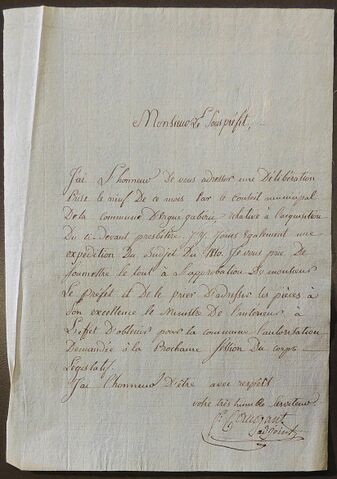 Monsieur Le Sous préfet,
J'ai L'honneur De vous adresser une Délibération
Prise le neuf De ce mois Par le Conseil municipal
De La commune relative à l'acquisition
Du ci-devant presbitere. J'y Joins également une
expédition Du Budjet Du 1810. Je vous prie De
soumettre le tout à l'approbation De monsieur
Le Préfet et De le prier D'adresser les pièces à
son excellence le Ministre De l'interieur à
L'effet D'obtenir pour la commune l'autorisation
Demandée à la Prochaine session Du corps
Législatif.
J'ai l'honneur D'être avec respect
votre très humble serviteur
adjoint